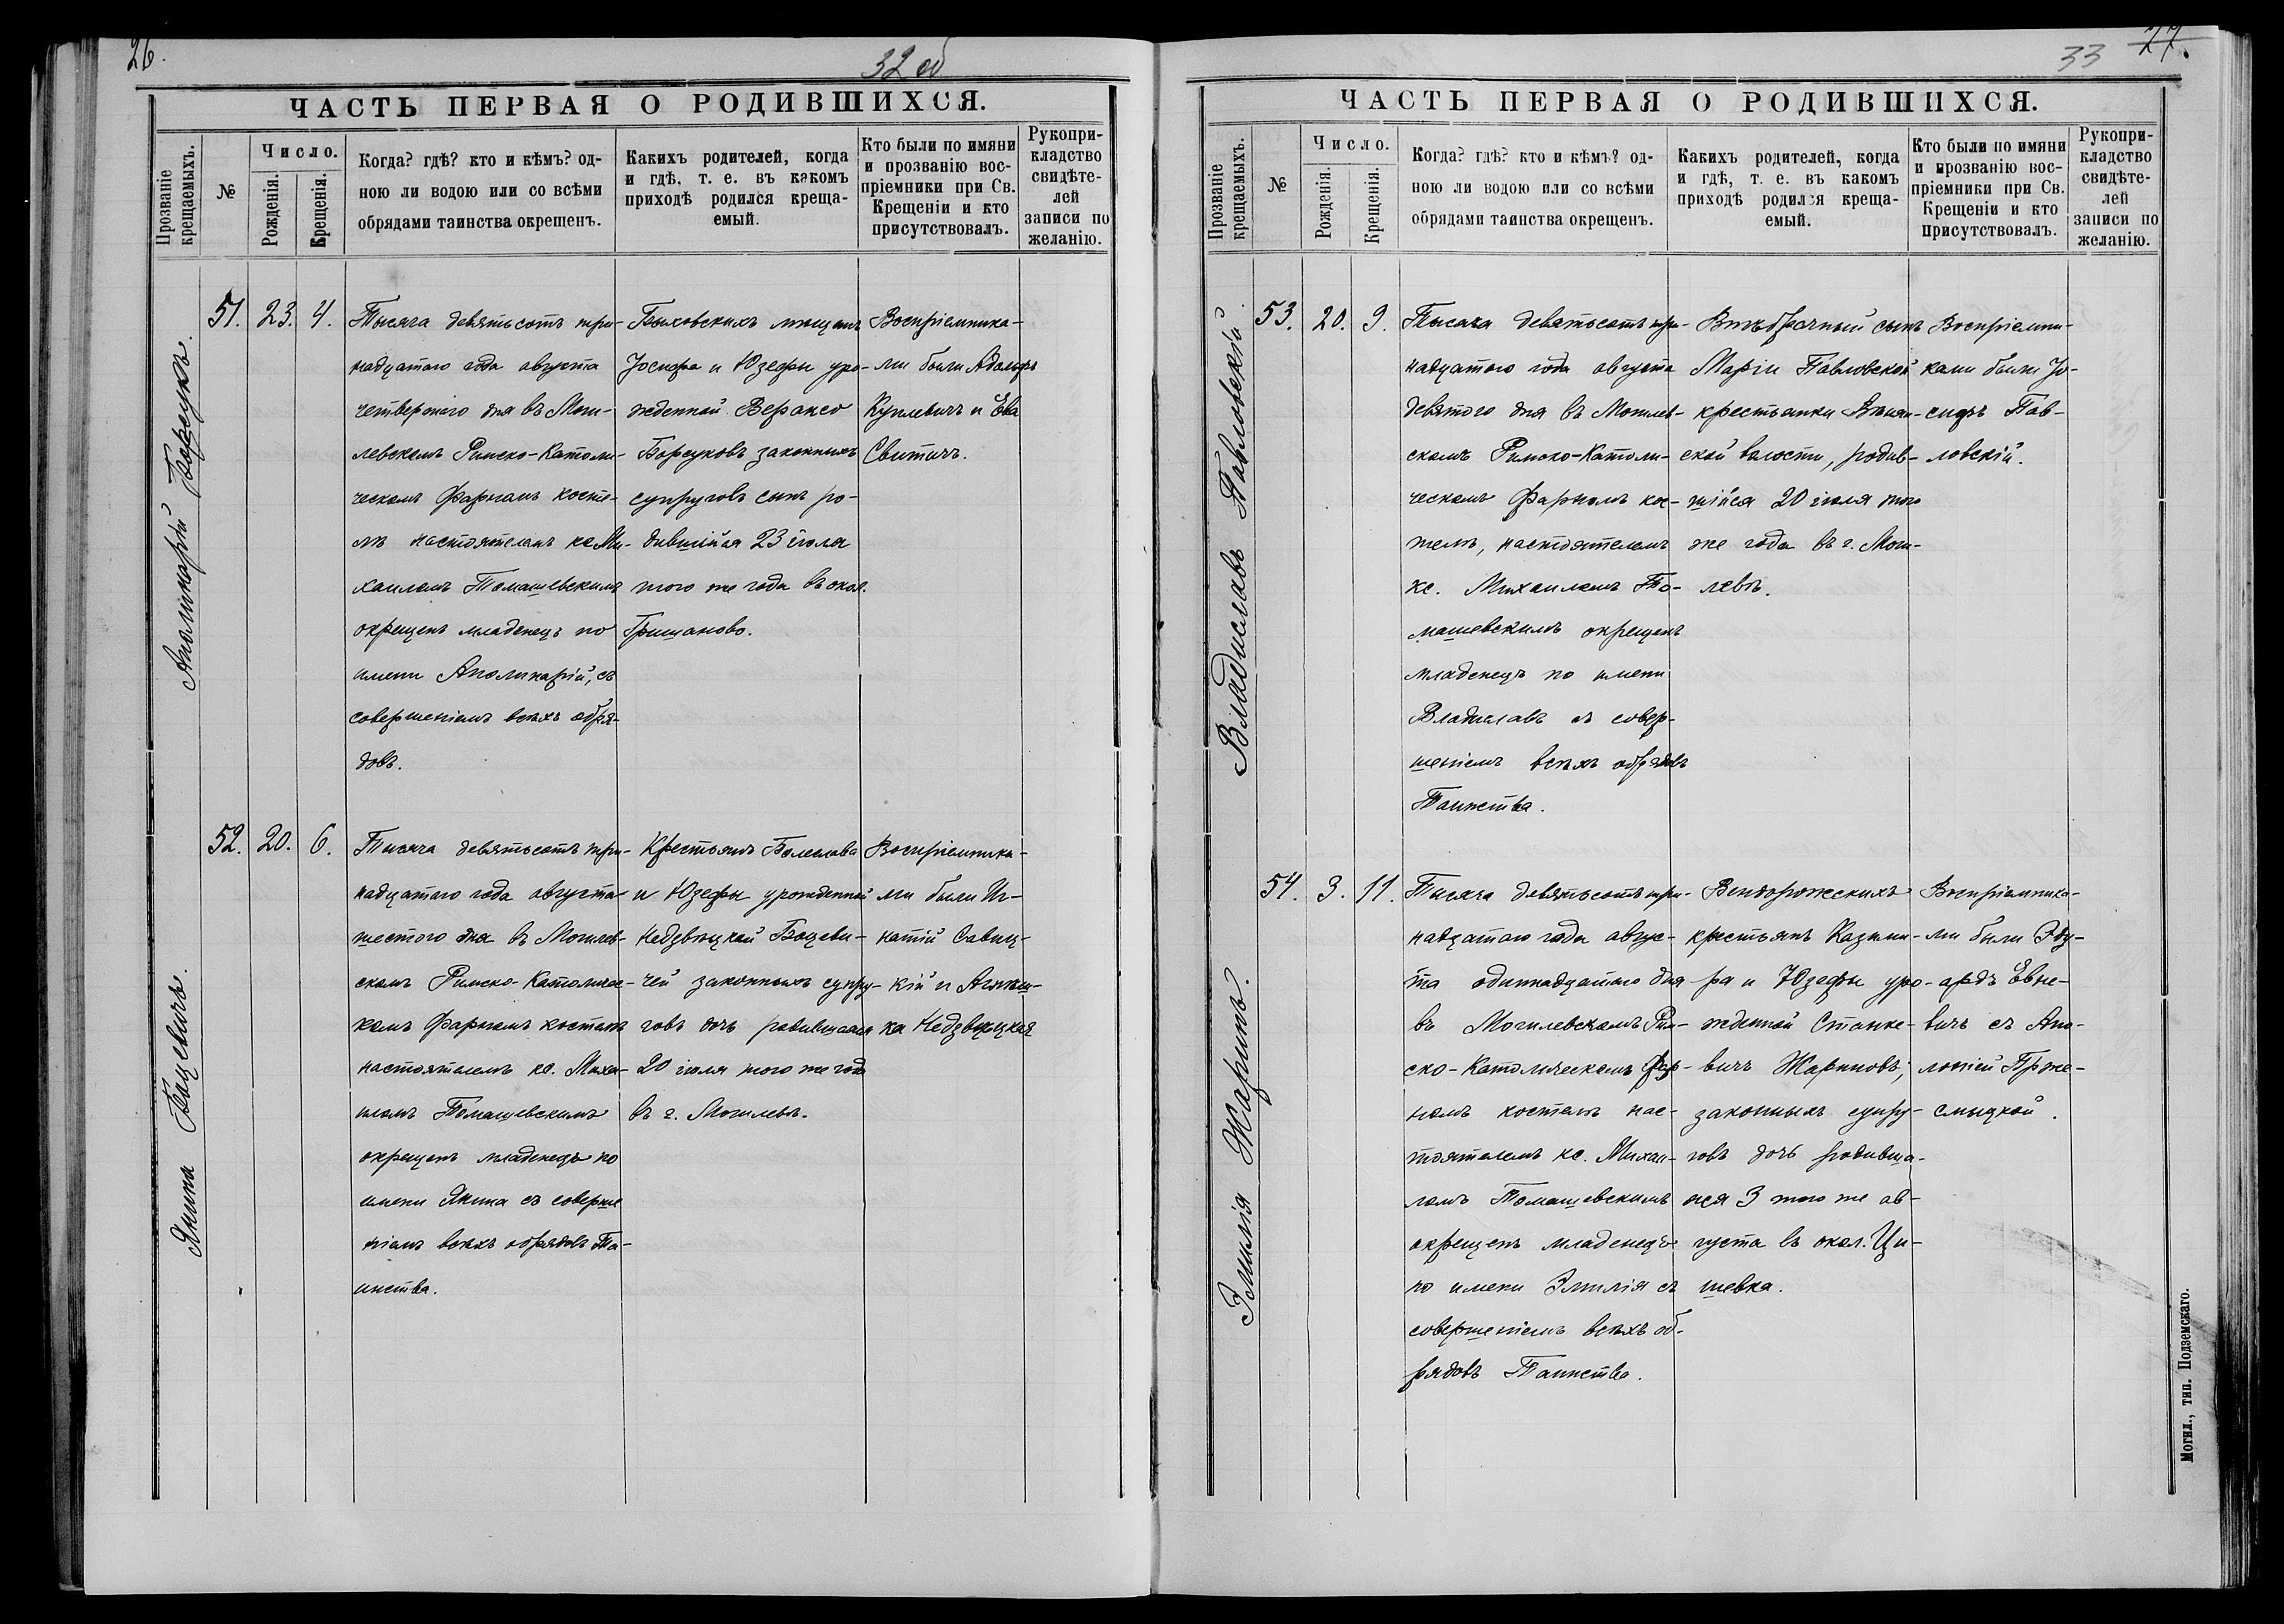 26.
32 об
ЧАСТЬ ПЕРВАЯ О РОДИВШИХСЯ.
Прозваніе крещаемыхъ.
№
Число.
Рожденія.
Крещенія.
Когда? гдѣ? кто и кѣмъ? од-
ною ли водою или со всѣми
обрядами таинства окрещенъ.
Какихъ родителей, когда
и гдѣ, т. е. въ какомъ
приходѣ родился креща-
емый.
Кто были по имяни
и прозванію вос-
пріемники при Св.
Крещеніи и кто
присутствовалъ.
Рукопри-
кладство
свидѣте-
лей
записи по
желанію.
Аполинарій Борсукъ.
51.
23.
4.
Тысяча девятьсотъ три-
надцатаго года августа
четвертаго дня въ Моги-
левскомъ Римско-Католи-
ческомъ Фарномъ косте-
лѣ настоятелемъ кс Ми-
хаиломъ Томашевскимъ
окрещенъ младенецъ по
имени Аполинарій, съ
совершеніемъ всѣхъ обря-
довъ.
Быховскихъ мѣщанъ
Іосифа и Юзефы уро-
жденной Вераксо
Борсуковъ законныхъ
супруговъ сынъ ро-
дившійся 23 іюля
того же года въ окол.
Грищаново.
Воспріемника-
ми были Адольфъ
Куплевичъ и Ева
Свитичъ.
Янина Бацевичъ.
52.
20.
6.
Тысяча девятьсотъ три-
надцатаго года августа
шестого дня въ Могилев-
скомъ Римско-Католичес-
комъ Фарномъ костелѣ
настоятелемъ кс. Миха-
иломъ Томашевскимъ
окрещенъ младенецъ по
имени Янина съ соверше
ніемъ всѣхъ обрядовъ Та-
инства.
Крестьянъ Болеслава
и Юзефы урожденной
Недзвѣцкой Бацеви-
чей законныхъ супру-
говъ дочь родившаяся
20 іюля того же года
въ г. Могилевѣ.
Воспріемника-
ми были Иг-
натій Савиц-
кій и Агнѣш-
ка Недзвѣцкая
33
27.
ЧАСТЬ ПЕРВАЯ О РОДИВШИХСЯ.
Прозваніе крещаемыхъ.
№
Число.
Рожденія.
Крещенія.
Когда? гдѣ? кто и кѣмъ? од-
ною ли водою или со всѣми
обрядами таинства окрещенъ.
Какихъ родителей, когда
и гдѣ, т. е. въ какомъ
приходѣ родился креща-
емый.
Кто были по имяни
и прозванію вос-
пріемники при Св.
Крещеніи и кто
присутствовалъ.
Рукопри-
кладство
свидѣте-
лей
записи по
желанію.
Владиславъ Павловскій.
53.
20.
9.
Тысяча девятьсотъ три-
надцатаго года августа
девятого дня въ Могилев-
скомъ Римско-Католи-
ческомъ Фарномъ кос-
телѣ, настоятелемъ
кс. Михаиломъ То-
машевскимъ окрещенъ
младенецъ по имени
Владиславъ съ совер-
шеніемъ всѣхъ обрядовъ
Таинства.
Внѣбрачный сынъ
Маріи Павловской
крестьянки
ской волости, родив-
шійся 20 іюля того
же года въ г. Моги-
левѣ.
Воспріемни-
ками были Іо-
сифъ Пав-
ловскій.
Эмилія Жаринъ.
54.
3.
11.
Тысяча девятьсотъ три-
надцатаго года авгус-
та одиннадцатаго дня
въ Могилевскомъ Рим-
ско-Католическомъ Фар-
номъ костелѣ нас-
тоятелемъ кс. Михаи-
ломъ Томашевскимъ
окрещенъ младенецъ
по имени Эмилія съ
совершеніемъ всѣхъ об-
рядовъ Таинства.
Вендорожскихъ
крестьянъ Казими-
ра и Юзефы уро-
жденной Станке-
вичъ Жариновъ,
законныхъ супру-
говъ дочь родивша-
яся 3 того же ав-
густа въ окол. Ци-
шевка.
Воспріемника-
ми были Эду-
ардъ Евне-
вичъ съ Апо-
лоніей Прже-
смыцкой.
Могил., тип. Подземскаго.